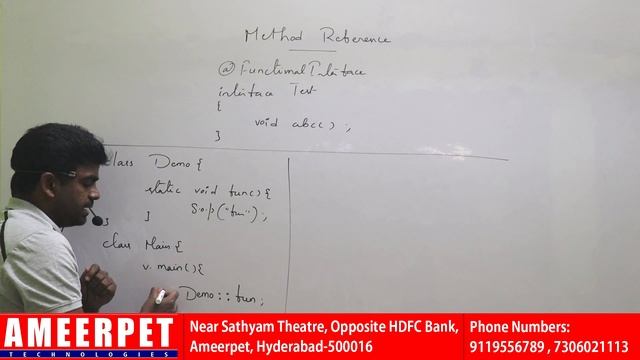 Method Reference
@FunctionalInterface
interface Test
{
void abc() ;
}
class Demo {
static void fun() {
S.o.p("fun");
}
}
class Main {
v. main() {
Demo :: fun ;
AMEERPET
TECHNOLOGIES
Near Sathyam Theatre, Opposite HDFC Bank,
Ameerpet, Hyderabad-500016
Phone Numbers:
9119556789 , 7306021113